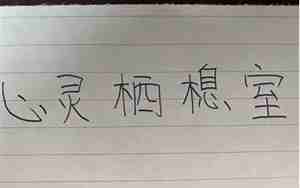 心灵栖息室